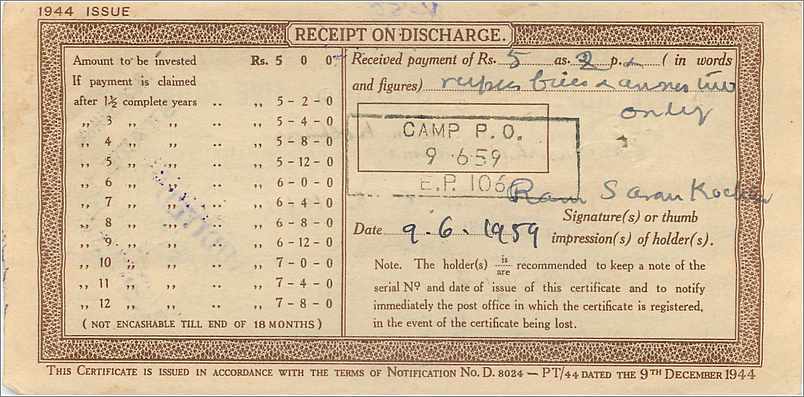 1944 ISSUE
RECEIPT ON DISCHARGE.
Amount to be invested Rs. 5 0 0
If payment is claimed
after 1½ complete years .. ,, 5 - 2 - 0
,, 3 ,, ,, .. ,, 5 - 4 - 0
,, 4 ,, ,, .. ,, 5 - 8 - 0
,, 5 ,, ,, .. ,, 5 - 12 - 0
,, 6 ,, ,, .. ,, 6 - 0 - 0
,, 7 ,, ,, .. ,, 6 - 4 - 0
,, 8 ,, ,, .. ,, 6 - 8 - 0
,, 9 ,, ,, .. ,, 6 - 12 - 0
,, 10 ,, ,, .. ,, 7 - 0 - 0
,, 11 ,, ,, .. ,, 7 - 4 - 0
,, 12 ,, ,, .. ,, 7 - 8 - 0
( NOT ENCASHABLE TILL END OF 18 MONTHS )
Received payment of Rs. 5 as. 2 p. ( in words
and figures) annas two
only
CAMP P.O.
9 6 59
E.P. 106
Ram Saran Kochar
Signature(s) or thumb
Date 9.6.1959 impression(s) of holder(s).
Note. The holder(s) is/are recommended to keep a note of the
serial Nº and date of issue of this certificate and to notify
immediately the post office in which the certificate is registered,
in the event of the certificate being lost.
THIS CERTIFICATE IS ISSUED IN ACCORDANCE WITH THE TERMS OF NOTIFICATION NO. D. 8024 — PT/44 DATED THE 9TH DECEMBER 1944